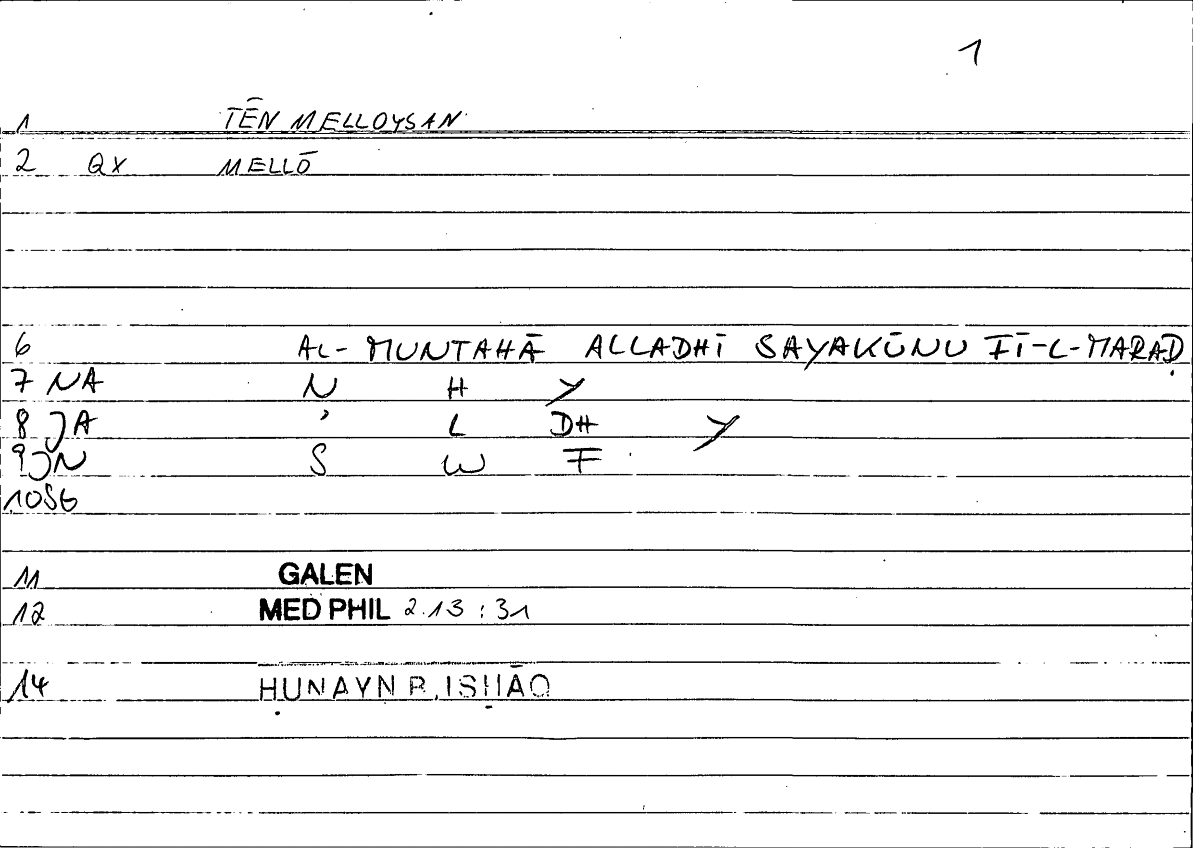 1
1 TĒN MELLOYSAN
2 QX MELLŌ
6 AL-MUNTAHĀ ALLADHĪ SAYAKŪNU FĪ-L-MARAḌ
7 NA N H Y
8 JA ʾ L DH Y
9 JN S W F
10 SG
11 GALEN
12 MED PHIL 2.13:31
14 ḤUNAYN B. ISḤĀQ